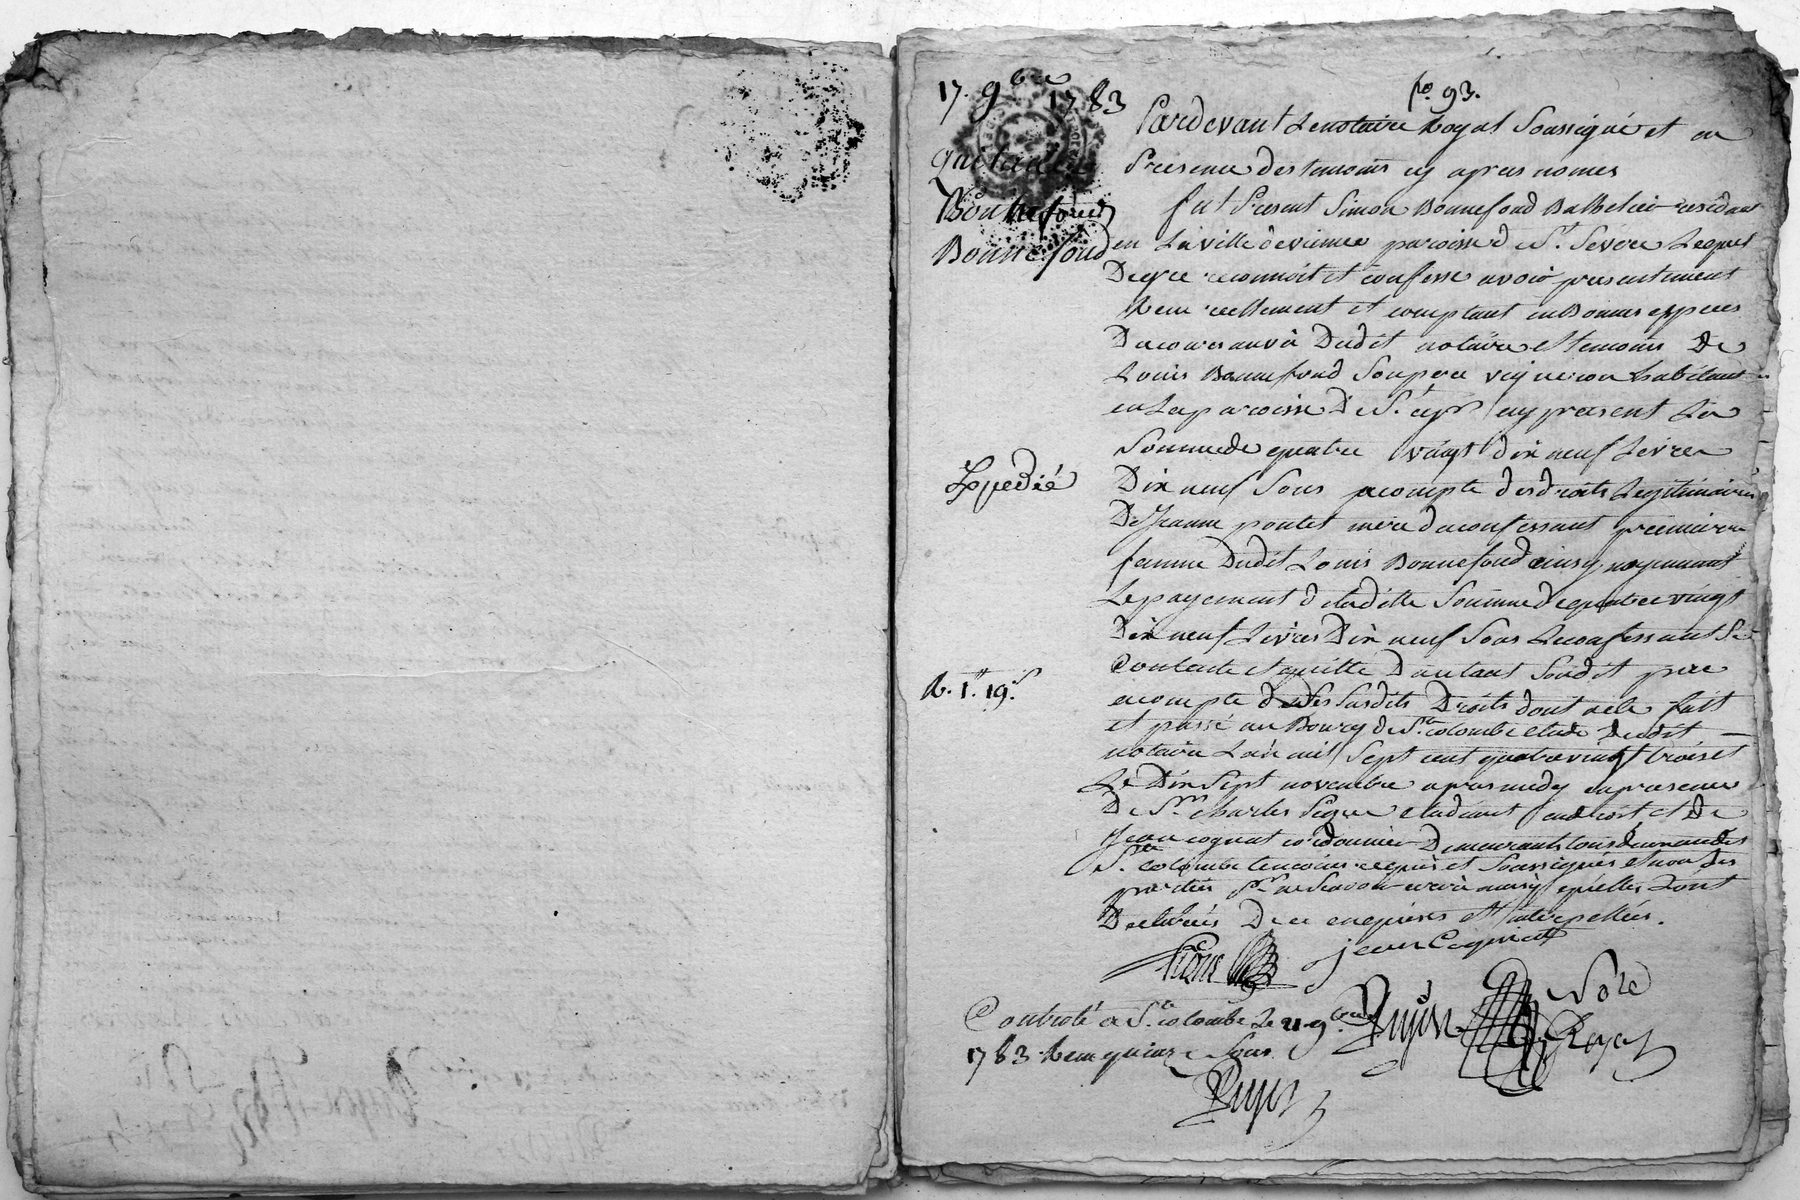 17. 9bre 1783
quittance
Bonnefond
Bonnefond
Expedié
R. 1.lt 19.s
fo. 93.
Pardevant Lenotaire Royal Soussigné et en
Presence des temoins cy apres nomes
fut Present Simon Bonnefond Battelier residant
en La ville de vienne paroisse de St. Severe Lequel
De gre reconnoit et confesse avoir presentement
Reçu reellement et comptant en Bonnes especes
Du cours au vû Dudit notaire et temoins De
Louis Bonnefond Son pere vigneron habitant
en La paroisse De St. cyr cy present La
Somme de quatre vingt dix neuf Livres
Dix neuf Sous acompte des droits Legitimaires
De Jeanne pontet mere du confessant premiere
femme Dudit Louis Bonnefond ainsy moyenant
Le payement de laditte Somme de quatre vingt
Dix neuf Livres Dix neuf Sous Le confessant Se
Contente et quitte D'autant Sondit pere
acompte de Ses Susdits Droits dont acte fait
et passé au Bourg de Ste. colombe etude Dudit
notaire L'an mil Sept cent quatrevingt trois et
Le Dix Sept novembre apres midy en presence
De Sr. charles etudiant en droit et De
Jean cogniat cordonnier Demeurants tous deux audit
Ste. colombe temoins requis et Soussignés et non Les
parties pr. ne Scavoir ecrire ainsy qu'elles L'ont
Declarés De ce enquises et interpellées.
jean Cogniat
Controlé a Ste. colombe Le 21. 9bre
1783. Reçu quinze Sous.
Nore
Royal